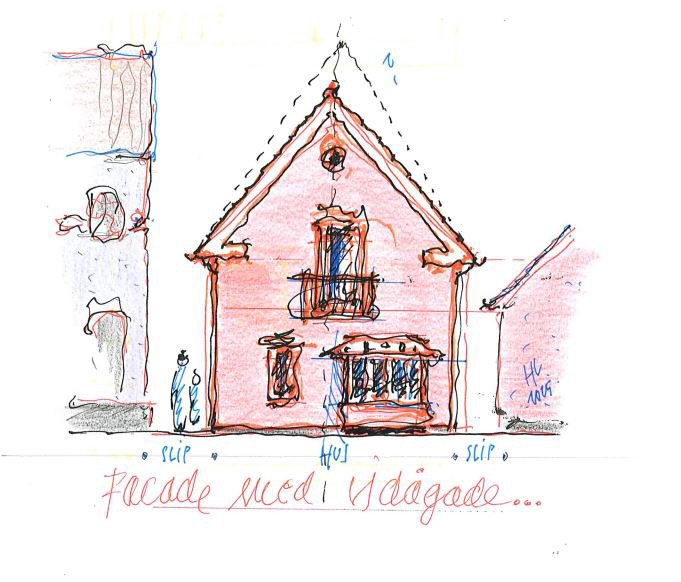 SLIP HUS SLIP
Facade med Ydågade...